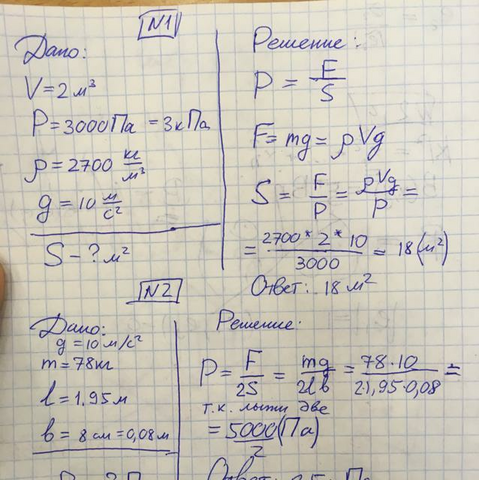 N1
Дано:
V = 2 м³
P = 3000 Па = 3 кПа
ρ = 2700 кг/м³
g = 10 м/с²
S - ? м²
Решение:
P = F/S
F = mg = ρVg
S = F/P = ρVg/P =
= 2700 * 2 * 10 / 3000 = 18 (м²)
Ответ: 18 м²
N2
Дано:
g = 10 м/с²
m = 78 кг
l = 1,95 м
b = 8 см = 0,08 м
Решение:
P = F/2S = mg/2lb = 78·10/2·1,95·0,08 =
т.к. лыжи две
= 5000/2 (Па)